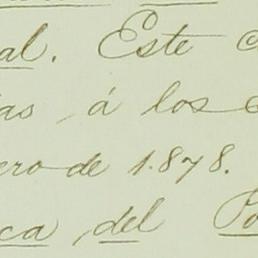 al. Este
as, á los
ero de 1.878.
ca del Po